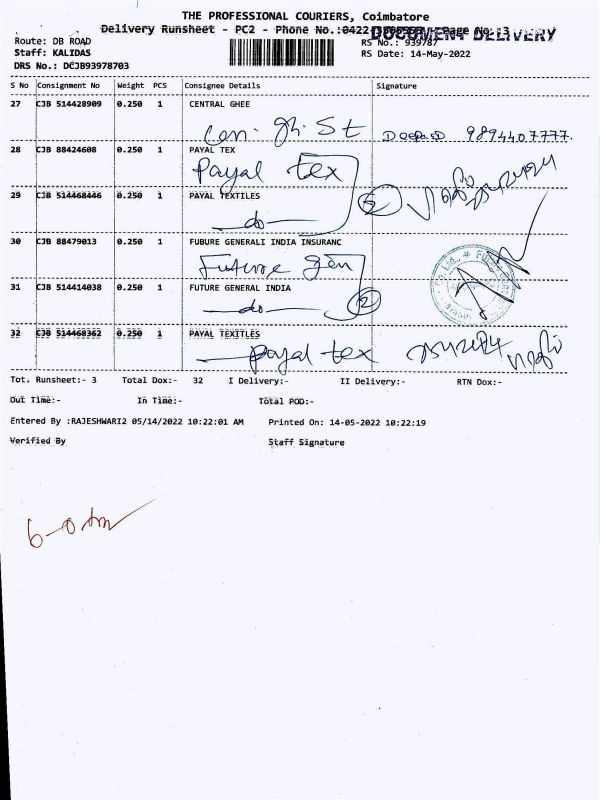 THE PROFESSIONAL COURIERS, Coimbatore
Delivery Runsheet - PC2 - Phone No.:0422 Page No.:3
DOCUMENT DELIVERY
Route: DB ROAD
RS No.: 939787
Staff: KALIDAS
RS Date: 14-May-2022
DRS No.: DCJB93978703
S No Consignment No Weight PCS Consignee Details Signature
27 CJB 514428909 0.250 1 CENTRAL GHEE
Cen. Gh. St Deepa D 9894407777.
28 CJB 88424608 0.250 1 PAYAL TEX
Payal tex
29 CJB 514468446 0.250 1 PAYAL TEXTILES
do (2)
30 CJB 88479013 0.250 1 FUBURE GENERALI INDIA INSURANC
Future Gen
31 CJB 514414038 0.250 1 FUTURE GENERAL INDIA
do (2)
32 CJB 514468362 0.250 1 PAYAL TEXITLES
payal tex
Tot. Runsheet:- 3 Total Dox:- 32 I Delivery:- II Delivery:- RTN Dox:-
Out Time:- In Time:- Total POD:-
Entered By :RAJESHWARI2 05/14/2022 10:22:01 AM Printed On: 14-05-2022 10:22:19
Verified By Staff Signature